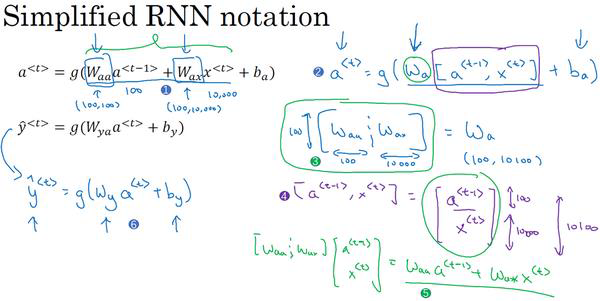 Simplified RNN notation
a<t> = g(Waa a<t−1> + Wax x<t> + ba)
100 ① 10,000
(100,100) (100,10,000)
ŷ<t> = g(Wya a<t> + by)
ŷ<t> = g(Wy a<t> + by)
⑥
② a<t> = g(Wa [a<t−1>, x<t>] + ba)
100 [Waa ; Wax] = Wa
③ 100 10000 (100, 10100)
④ [a<t−1>, x<t>] = [a<t−1>
x<t>] 100
10000
10100
[Waa ; Wax] [a<t−1>
x<t>] = Waa a<t−1> + Wax x<t>
⑤